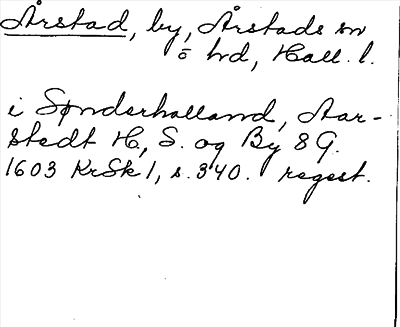 Årstad, by, Årstads sn
o hd, Hall. l.
i Sønderhalland, Aar-
stedt H, S. og By 8 G.
1603 KrSk 1, s. 340. regest.